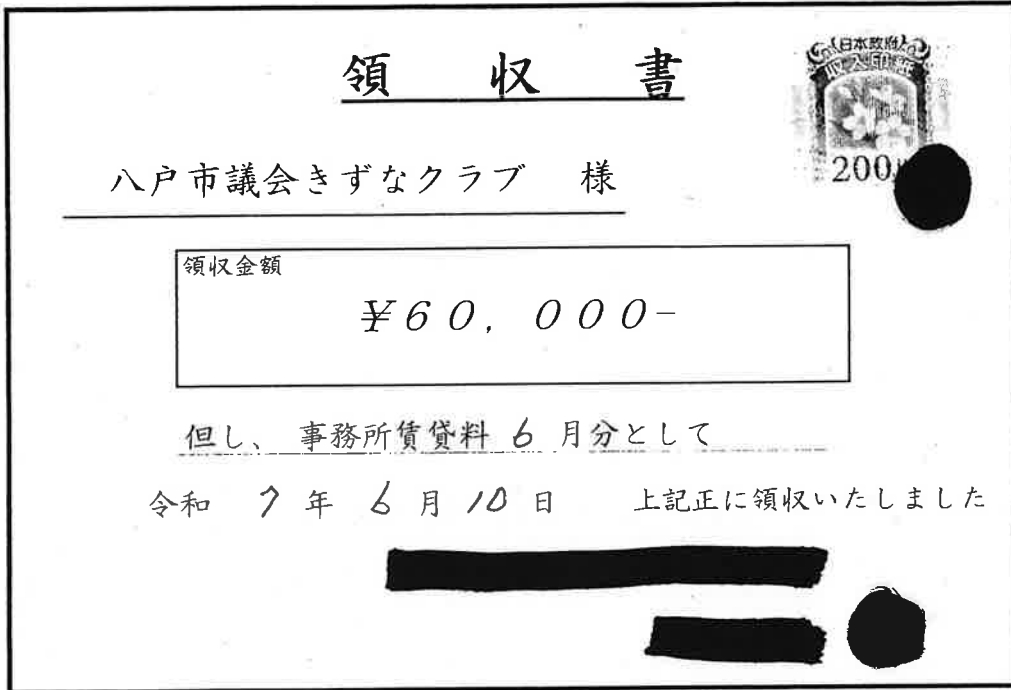 領収書
日本政府
収入印紙
200
八戸市議会きずなクラブ 様
領収金額
¥60,000-
但し、事務所賃貸料 6 月分として
令和 7 年 6 月 10 日 上記正に領収いたしました